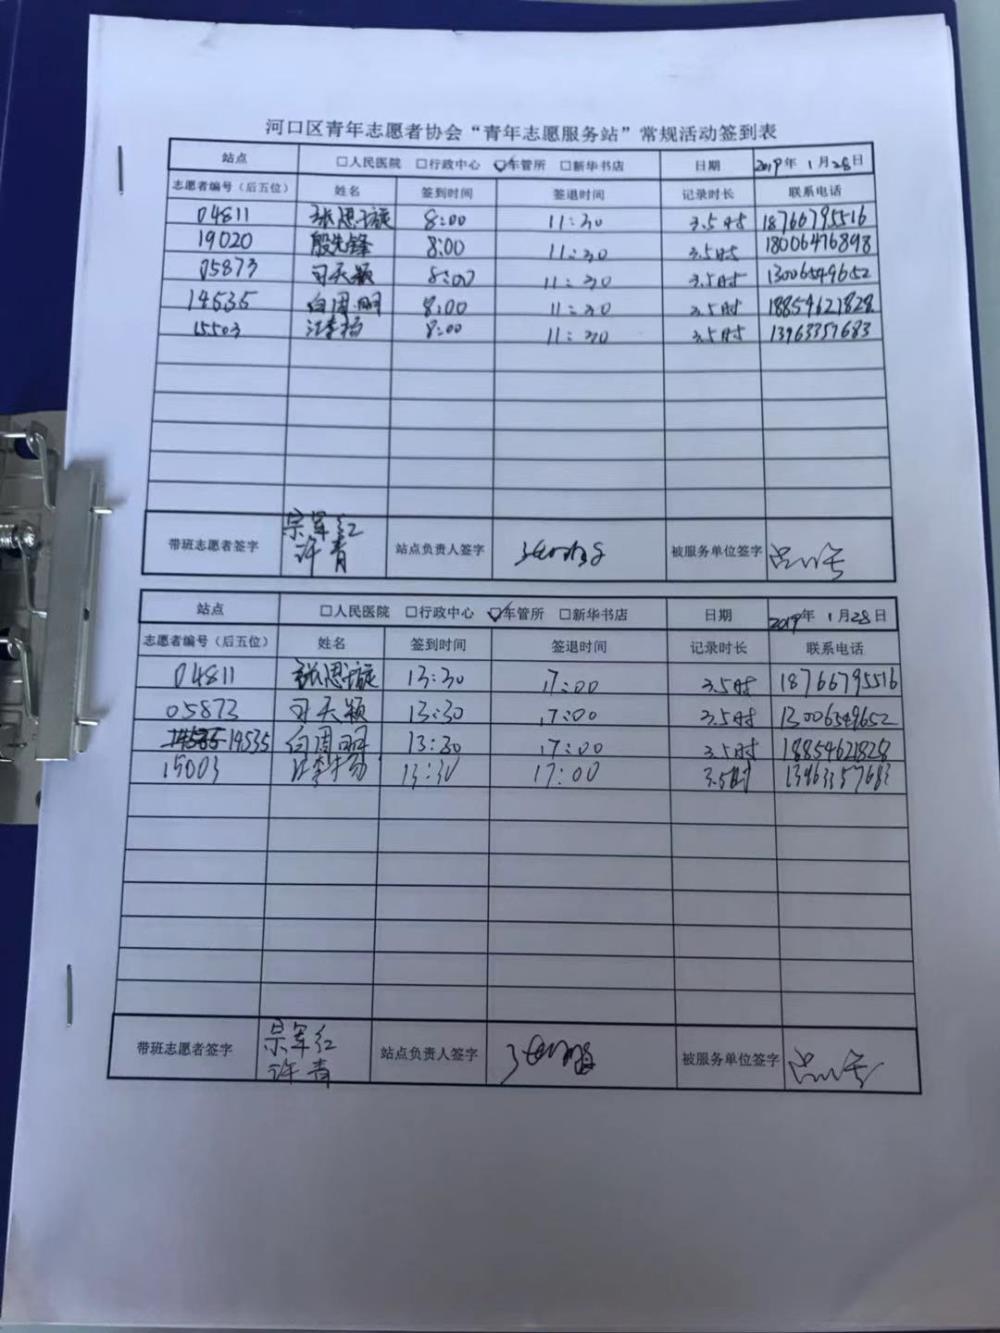 河口区青年志愿者协会“青年志愿服务站”常规活动签到表
站点 □人民医院 □行政中心 ☑车管所 □新华书店 日期 2019年 1月28日
志愿者编号（后五位） 姓名 签到时间 签退时间 记录时长 联系电话
04811 张思璇 8:00 11:30 3.5时 18766795516
19020 殷先锋 8:00 11:30 3.5时 18006476898
05873 司天颖 8:00 11:30 3.5时 13006549652
14535 白周明 8:00 11:30 3.5时 18854621828
15503 8:00 11:30 3.5时 13963357683
带班志愿者签字 宗军红 许青 站点负责人签字 被服务单位签字
站点 □人民医院 □行政中心 ☑车管所 □新华书店 日期 2019年 1月28日
志愿者编号（后五位） 姓名 签到时间 签退时间 记录时长 联系电话
04811 张思璇 13:30 17:00 3.5时 18766795516
05873 司天颖 13:30 17:00 3.5时 13006549652
14535 白周明 13:30 17:00 3.5时 18854621828
15003 13:30 17:00 3.5时 13963357683
带班志愿者签字 宗军红 许青 站点负责人签字 被服务单位签字